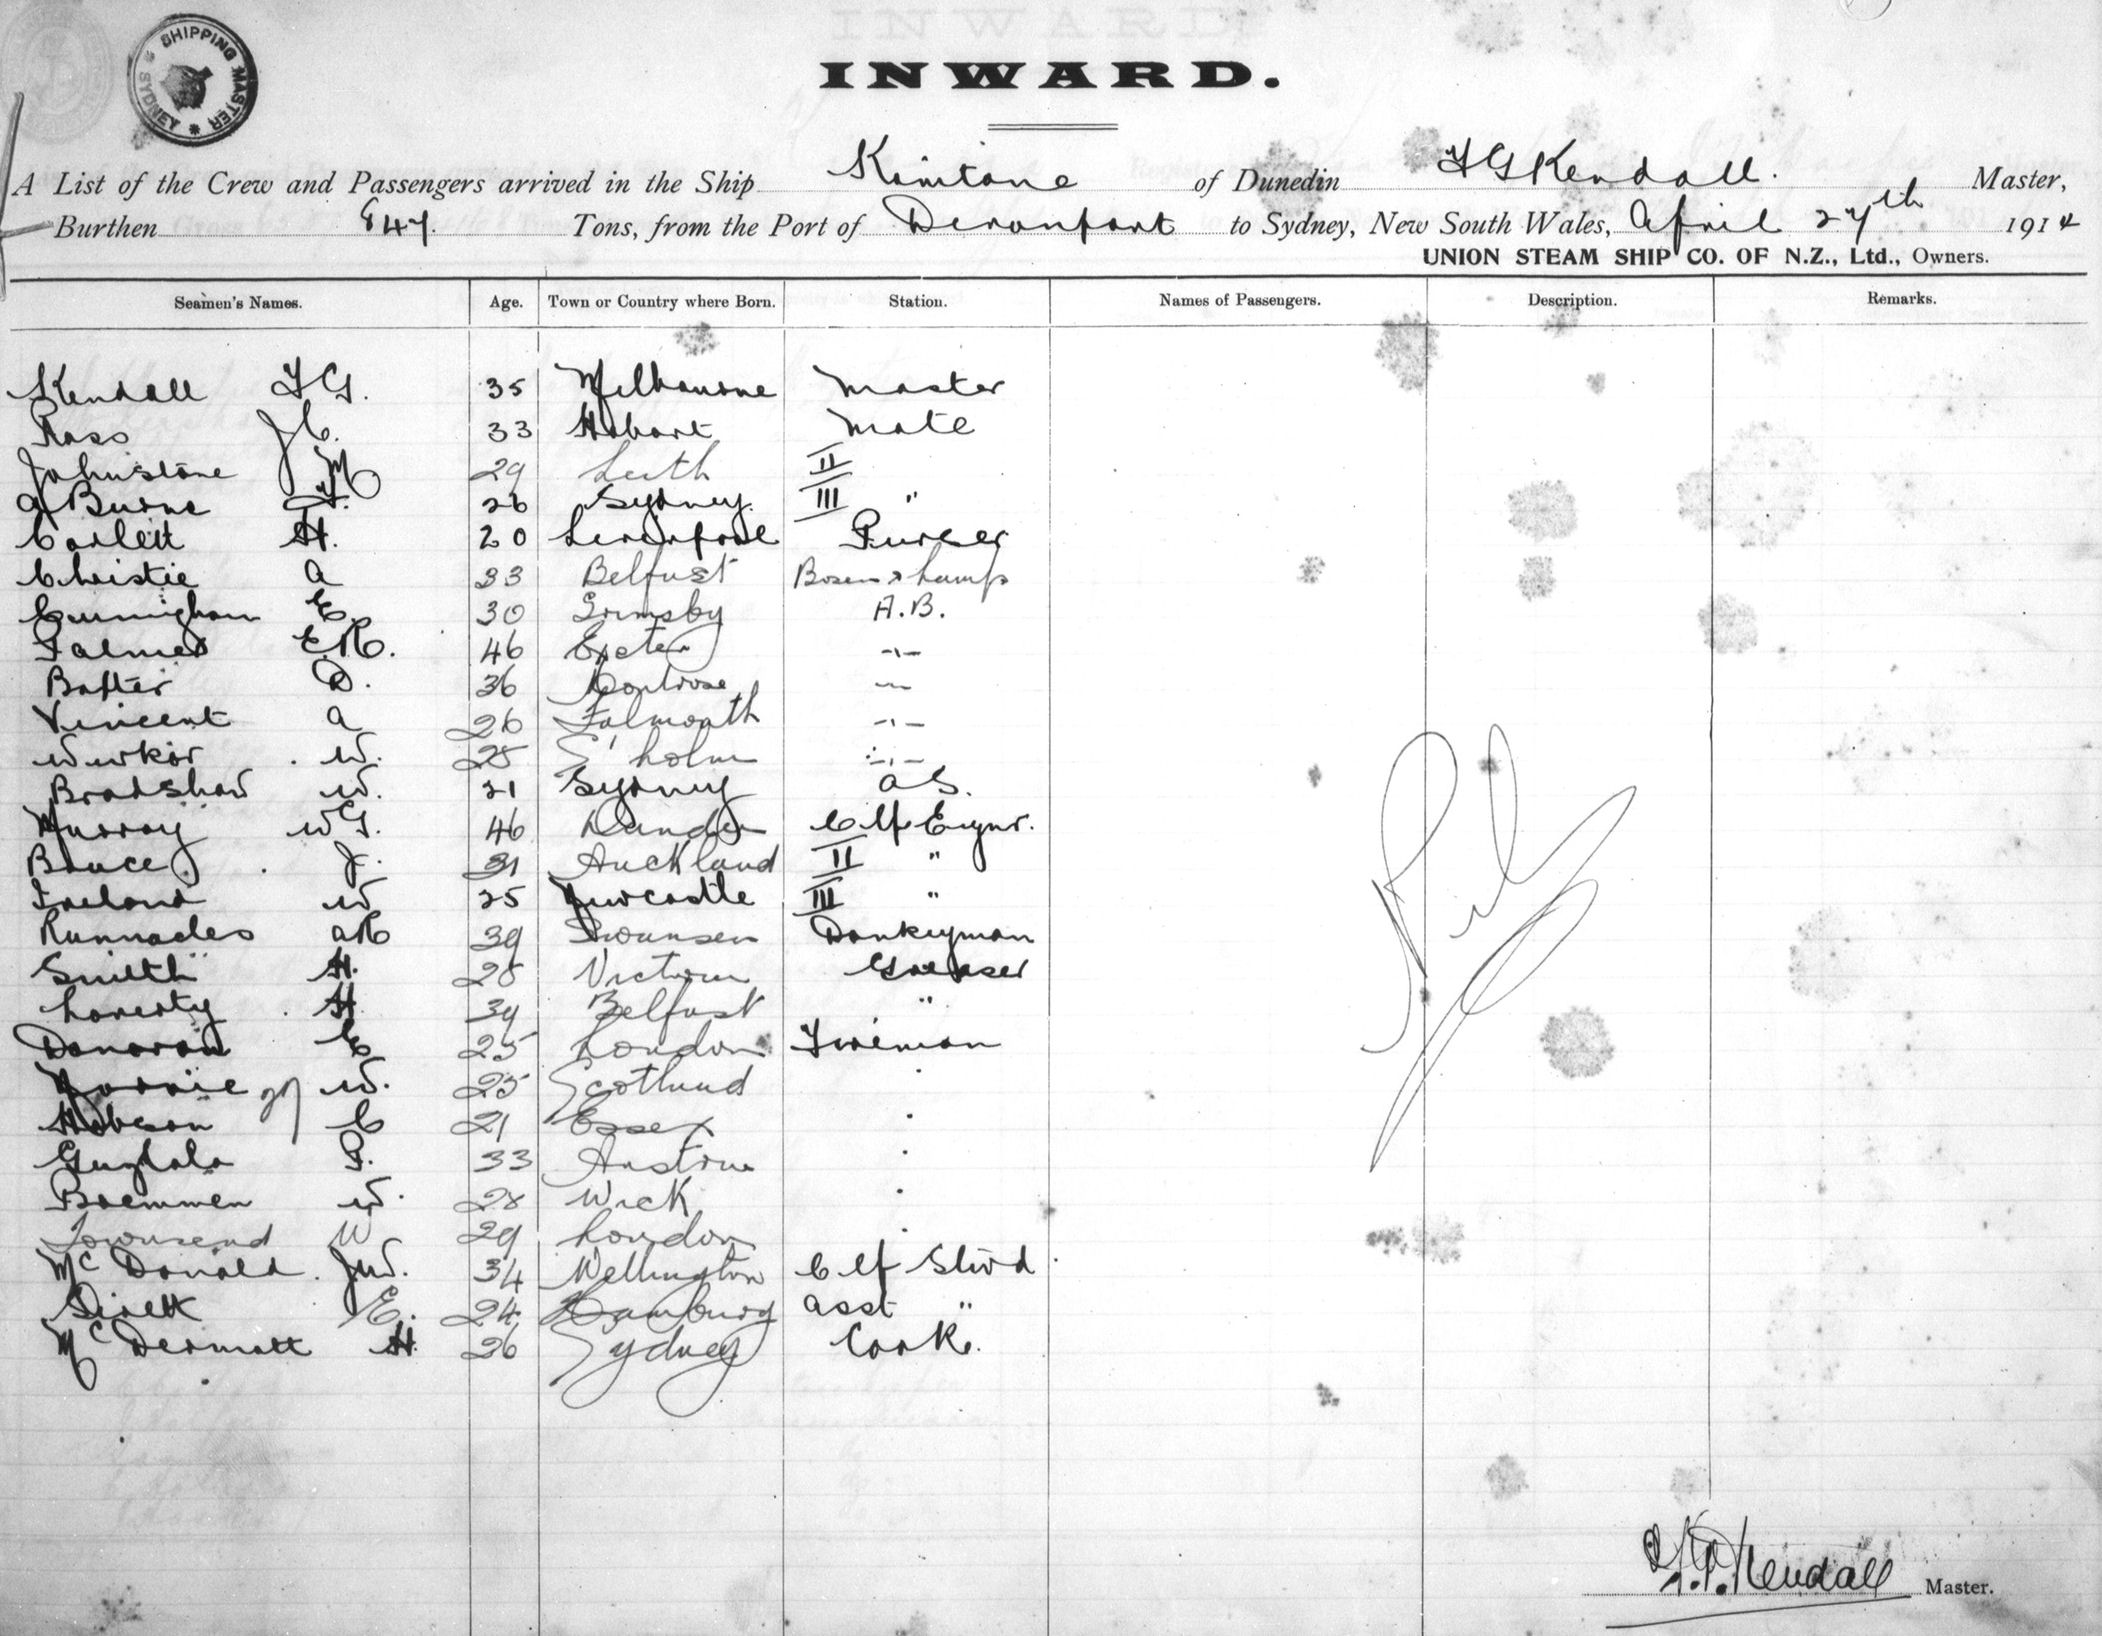 SHIPPING MASTER SYDNEY
INWARD.
A List of the Crew and Passengers arrived in the Ship Kinitane of Dunedin F G Kendall. Master,
Burthen 847. Tons, from the Port of Devonport to Sydney, New South Wales, April 27th 1914
UNION STEAM SHIP CO. OF N.Z., Ltd., Owners.
Seamen's Names. Age. Town or Country where Born. Station. Names of Passengers. Description. Remarks.
Kendall F G. 35 Melbourne Master
Ross J C. 33 Hobart Mate
Johnstone M 29 Leith II
F. 26 Sydney. III "
Corlett H. 20 Liverpool Purser
Christie A 33 Belfast Bosun & Lamps
Cunningham E. 30 Grimsby A.B.
Palmer E R. 46 Exeter -"-
Baxter D. 36 Montrose -"-
Vincent A 26 Falmouth -"-
W. 25 S'holm -"-
Bradshaw W. 21 Sydney O S.
Murray W G. 46 Dundee Clf Engnr.
Bruce J. 31 Auckland II "
Ireland W 25 Newcastle III "
Runnacles A R 39 Swansea Donkeyman
Smith H. 28 Victoria Greaser
Laverty H 39 Belfast "
Donovan C 25 London Fireman
W. 25 Scotland "
Hobson C 21 Essex "
P. 33 Austria "
Bremmen W. 28 Wick "
Townsend W 29 London "
McDonald J W. 34 Wellington Clf Stwd
Sirett E. 24 Hamburg Asst "
McDermott H. 36 Sydney Cook.
Nil
F. G. Kendall Master.